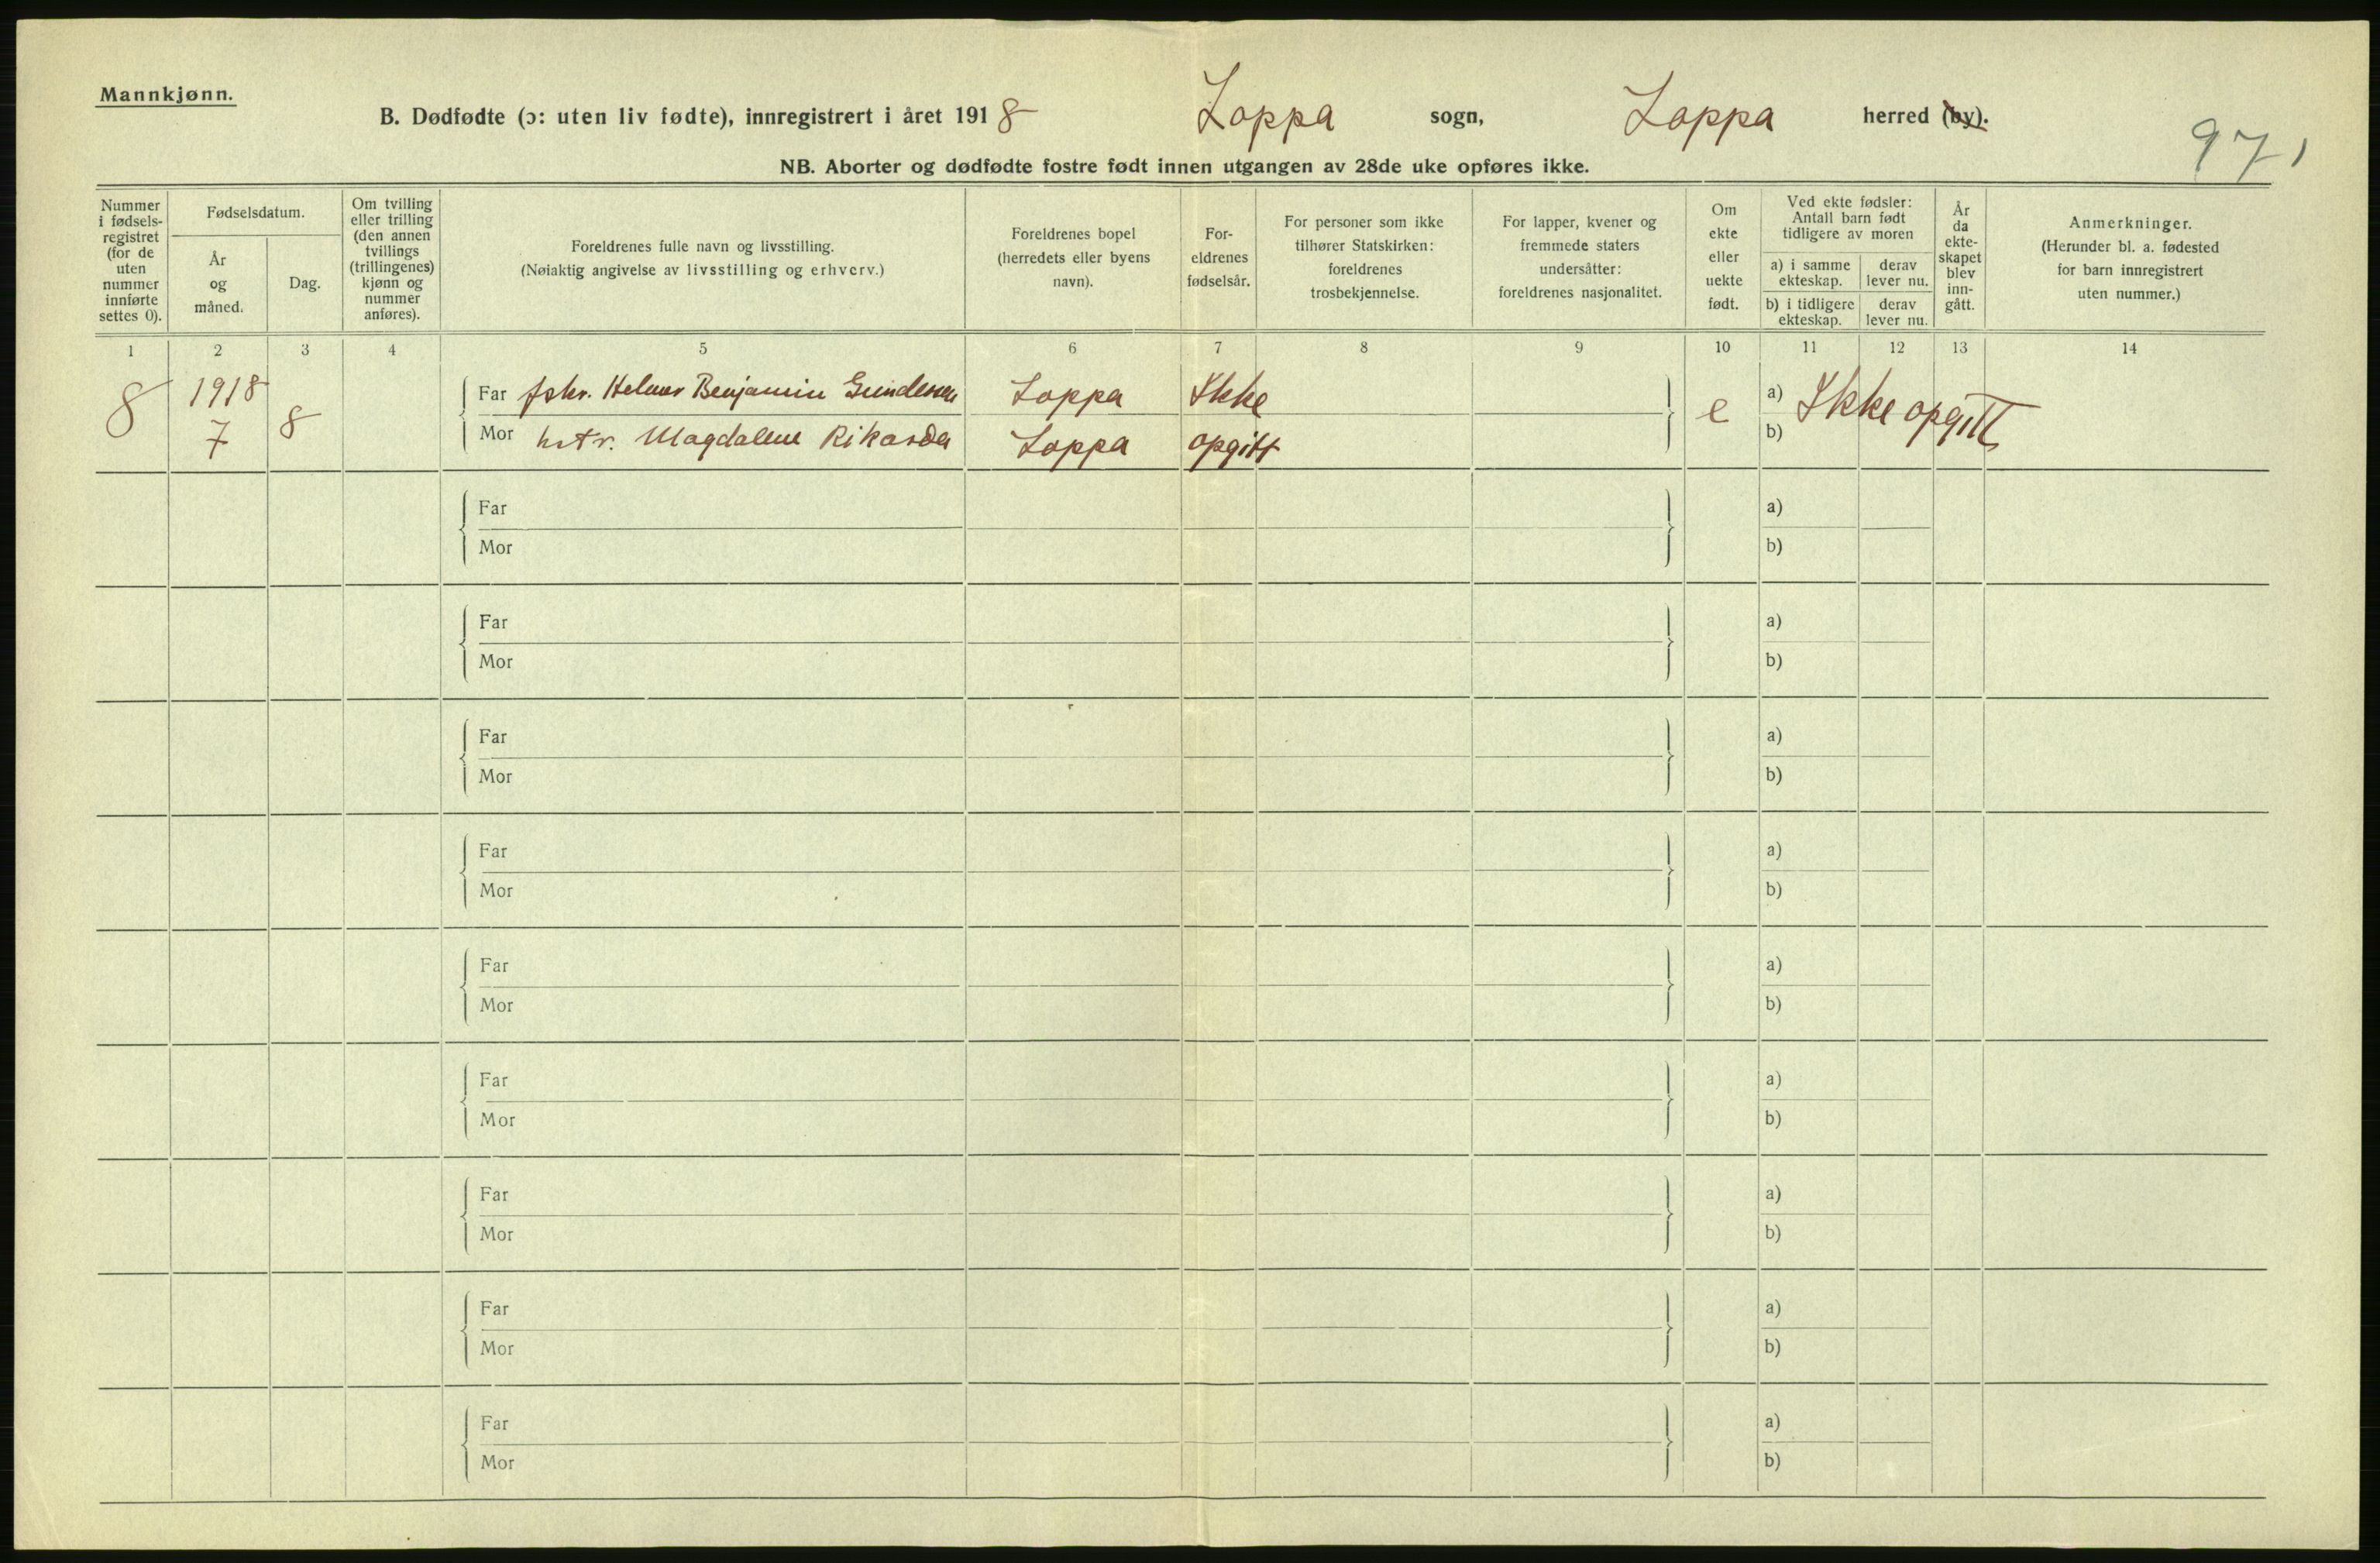 Mannkjønn.
B. Dødfødte (ɔ: uten liv fødte), innregistrert i året 1918 Loppa sogn, Loppa herred (by).
971
NB. Aborter og dødfødte fostre født innen utgangen av 28de uke opføres ikke.
Nummer
i fødsels-
registret
(for de
uten
nummer
innførte
settes 0).
Fødselsdatum.
År
og
måned.
Dag.
Om tvilling
eller trilling
(den annen
tvillings
(trillingenes)
kjønn og
nummer
anføres).
Foreldrenes fulle navn og livsstilling.
(Nøiaktig angivelse av livsstilling og erhverv.)
Foreldrenes bopel
(herredets eller byens
navn).
For-
eldrenes
fødselsår.
For personer som ikke
tilhører Statskirken:
foreldrenes
trosbekjennelse.
For lapper, kvener og
fremmede staters
undersåtter:
foreldrenes nasjonalitet.
Om
ekte
eller
uekte
født.
Ved ekte fødsler:
Antall barn født
tidligere av moren
a) i samme
ekteskap.
derav
lever nu.
b) i tidligere
ekteskap.
derav
lever nu.
År
da
ekte-
skapet
blev
inn-
gått.
Anmerkninger.
(Herunder bl. a. fødested
for barn innregistrert
uten nummer.)
1 2 3 4 5 6 7 8 9 10 11 12 13 14
8 1918 7 8
Far fskr. Helmer Benjamin Gundersen Loppa Ikke
Mor hstr. Magdalene Rikarda Loppa opgitt
e a) b) Ikke opgitt
Far a)
Mor b)
Far a)
Mor b)
Far a)
Mor b)
Far a)
Mor b)
Far a)
Mor b)
Far a)
Mor b)
Far a)
Mor b)
Far a)
Mor b)
Far a)
Mor b)